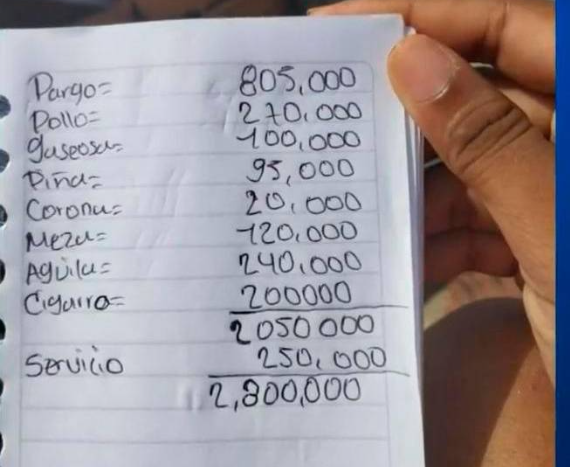 Pargo= 805,000
Pollo= 270,000
gaseosa= 100,000
Piña= 95,000
Corona= 20,000
Meza= 120,000
Aguila= 240,000
Cigarro= 200000
2050000
Servicio 250,000
2,800,000